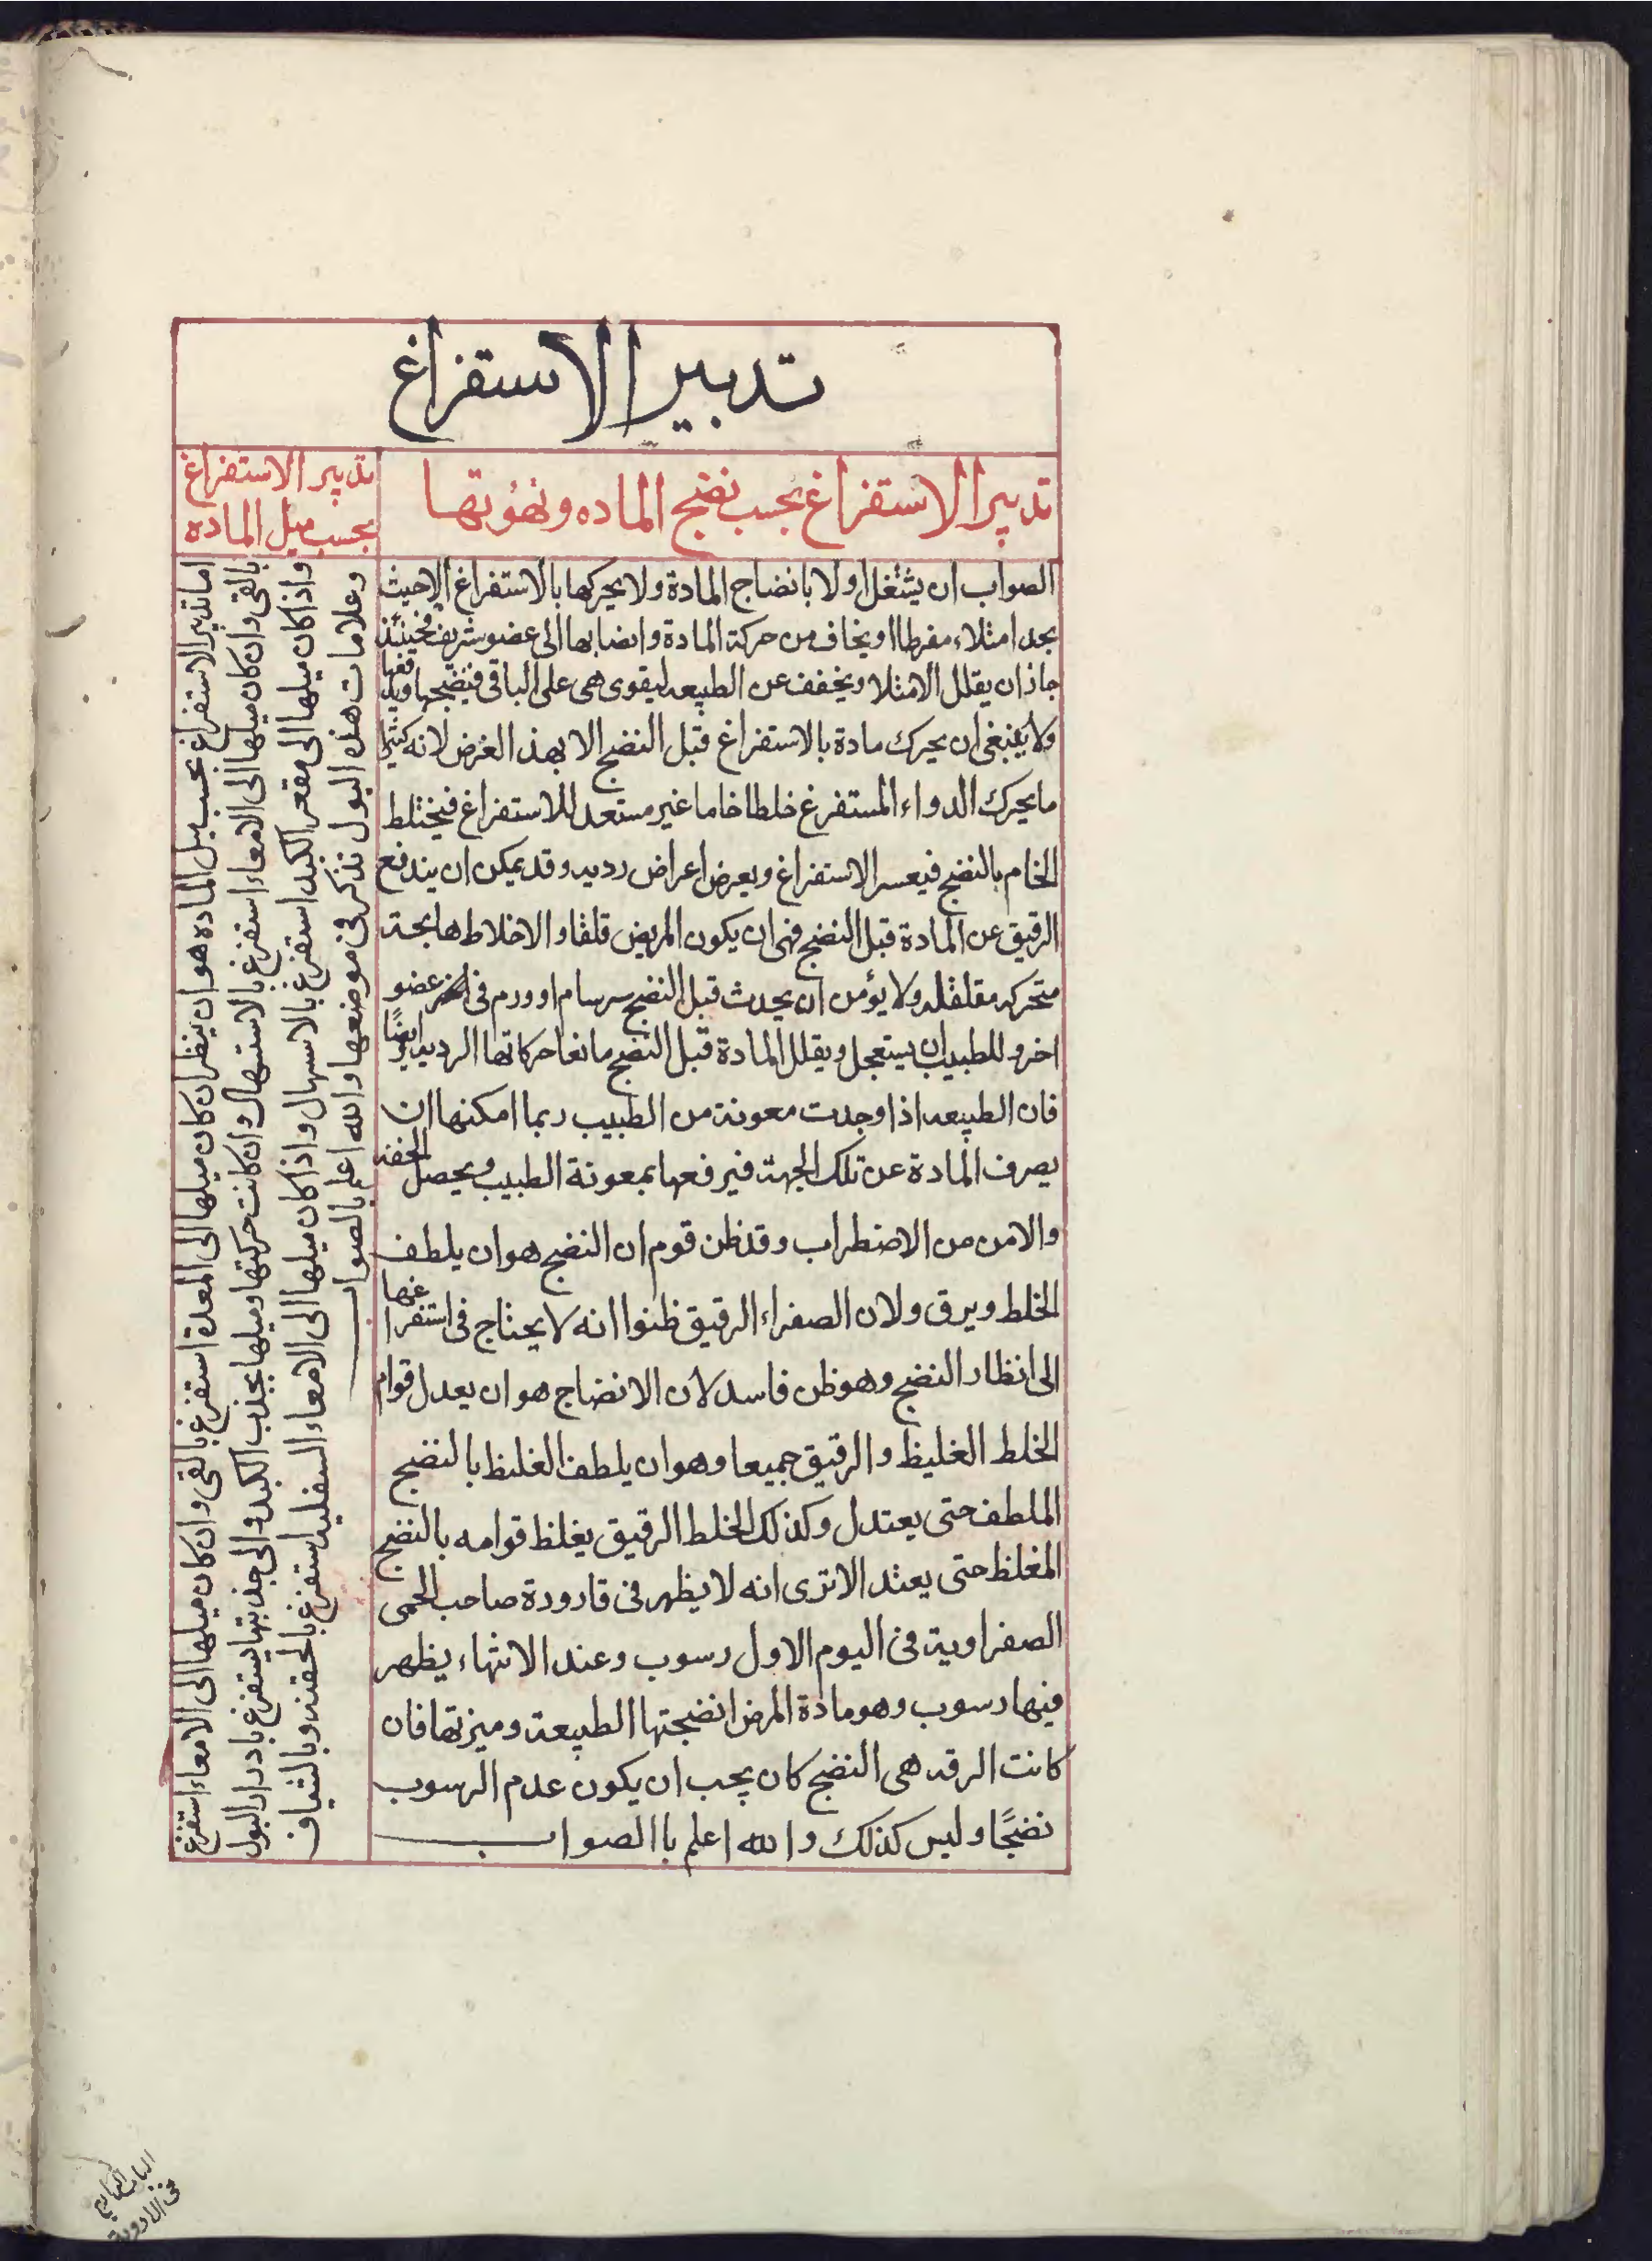 تدبير الاستفراغ
تدبير الاستفراغ بحسب نضج الماده ونهوتها
الصواب ان يشتغل اولا بانضاج المادة ولا يحركها بالاستفراغ الاحيث
يجد امتلاء مفرطا او يخاف من حركة المادة وانضابها الى عضو شريف فحينئذ
جاز ان يقلل الامتلا ويخفف عن الطبيعه ليقوى هى على الباقى فتنضجها ويدفعها
ولا ينبغى ان يحرك مادة بالاستفراغ قبل النضج الا بهذ الغرض لانه كثيرا
ما يحرك الدواء المستفرغ خلطا خاما غير مستعد للاستفراغ فيختلط
الخام بالنضج فيعسر الاستفراغ ويعرض اعراض رديه وقد يمكن ان يندفع
الرقيق عن المادة قبل النضج فهى ان يكون المريض قلقا والاخلاط هايجة
متحركه مقلقله ولا يؤمن ان يحدث قبل النضج سرسام او ورم فى عضو
اخر وللطبيب ان يستعجل ويقلل المادة قبل النضج مانعا حركاتها الرديه ايضًا
فان الطبيعه اذا وجدت معونة من الطبيب ربما امكنها ان
يصرف المادة عن تلك الجهة فيرفعها بمعونة الطبيب ويحصل الخفه
والامن من الاضطراب وقد ظن قوم ان النضج هو ان يلطف
الخلط ويرق ولان الصفراء الرقيق ظنوا انه لا يحتاج فى استفراغها
الى انظار النضج وهو ظن فاسد لان الانضاج هو ان يعدل قوام
الخلط الغليظ والرقيق جميعا وهو ان يلطف الغليظ بالنضج
الملطف حتى يعتدل وكذلك الخلط الرقيق يغلظ قوامه بالنضج
المغلظ حتى يعتد الا ترى انه لا يظهر فى قارورة صاحب الحمى
الصفراوية فى اليوم الاول رسوب وعند الانتهاء يظهر
فيها رسوب وهو مادة المرض انضجتها الطبيعة وميزتها فان
كانت الرقه هى النضج كان يجب ان يكون عدم الرسوب
نضجًا وليس كذلك والله اعلم باالصواب
تدبير الاستفراغ
بحسب ميل الماده
اما تدبير الاستفراغ بحسب ميل الماده هو ان ينظر ان كان ميلها الى المعدة استفرغ بالقى وان كان ميلها الى الامعاء استفرغ
بالقى وان كان ميلها الى الامعاء استفرغ بالاستهال وان كانت حركتها وميلها بجذب الكبد والى جذبتها يستفرغ بادرار البول
واذا كان ميلها الى مقعر الكبد استفرغ بالاسهال واذا كان ميلها الى الامعاء السفليه استفرغ بالحقنه وبالشياف
وعلامات هذه البول نذكر فى موضعها والله اعلم بالصواب
فى الادوية